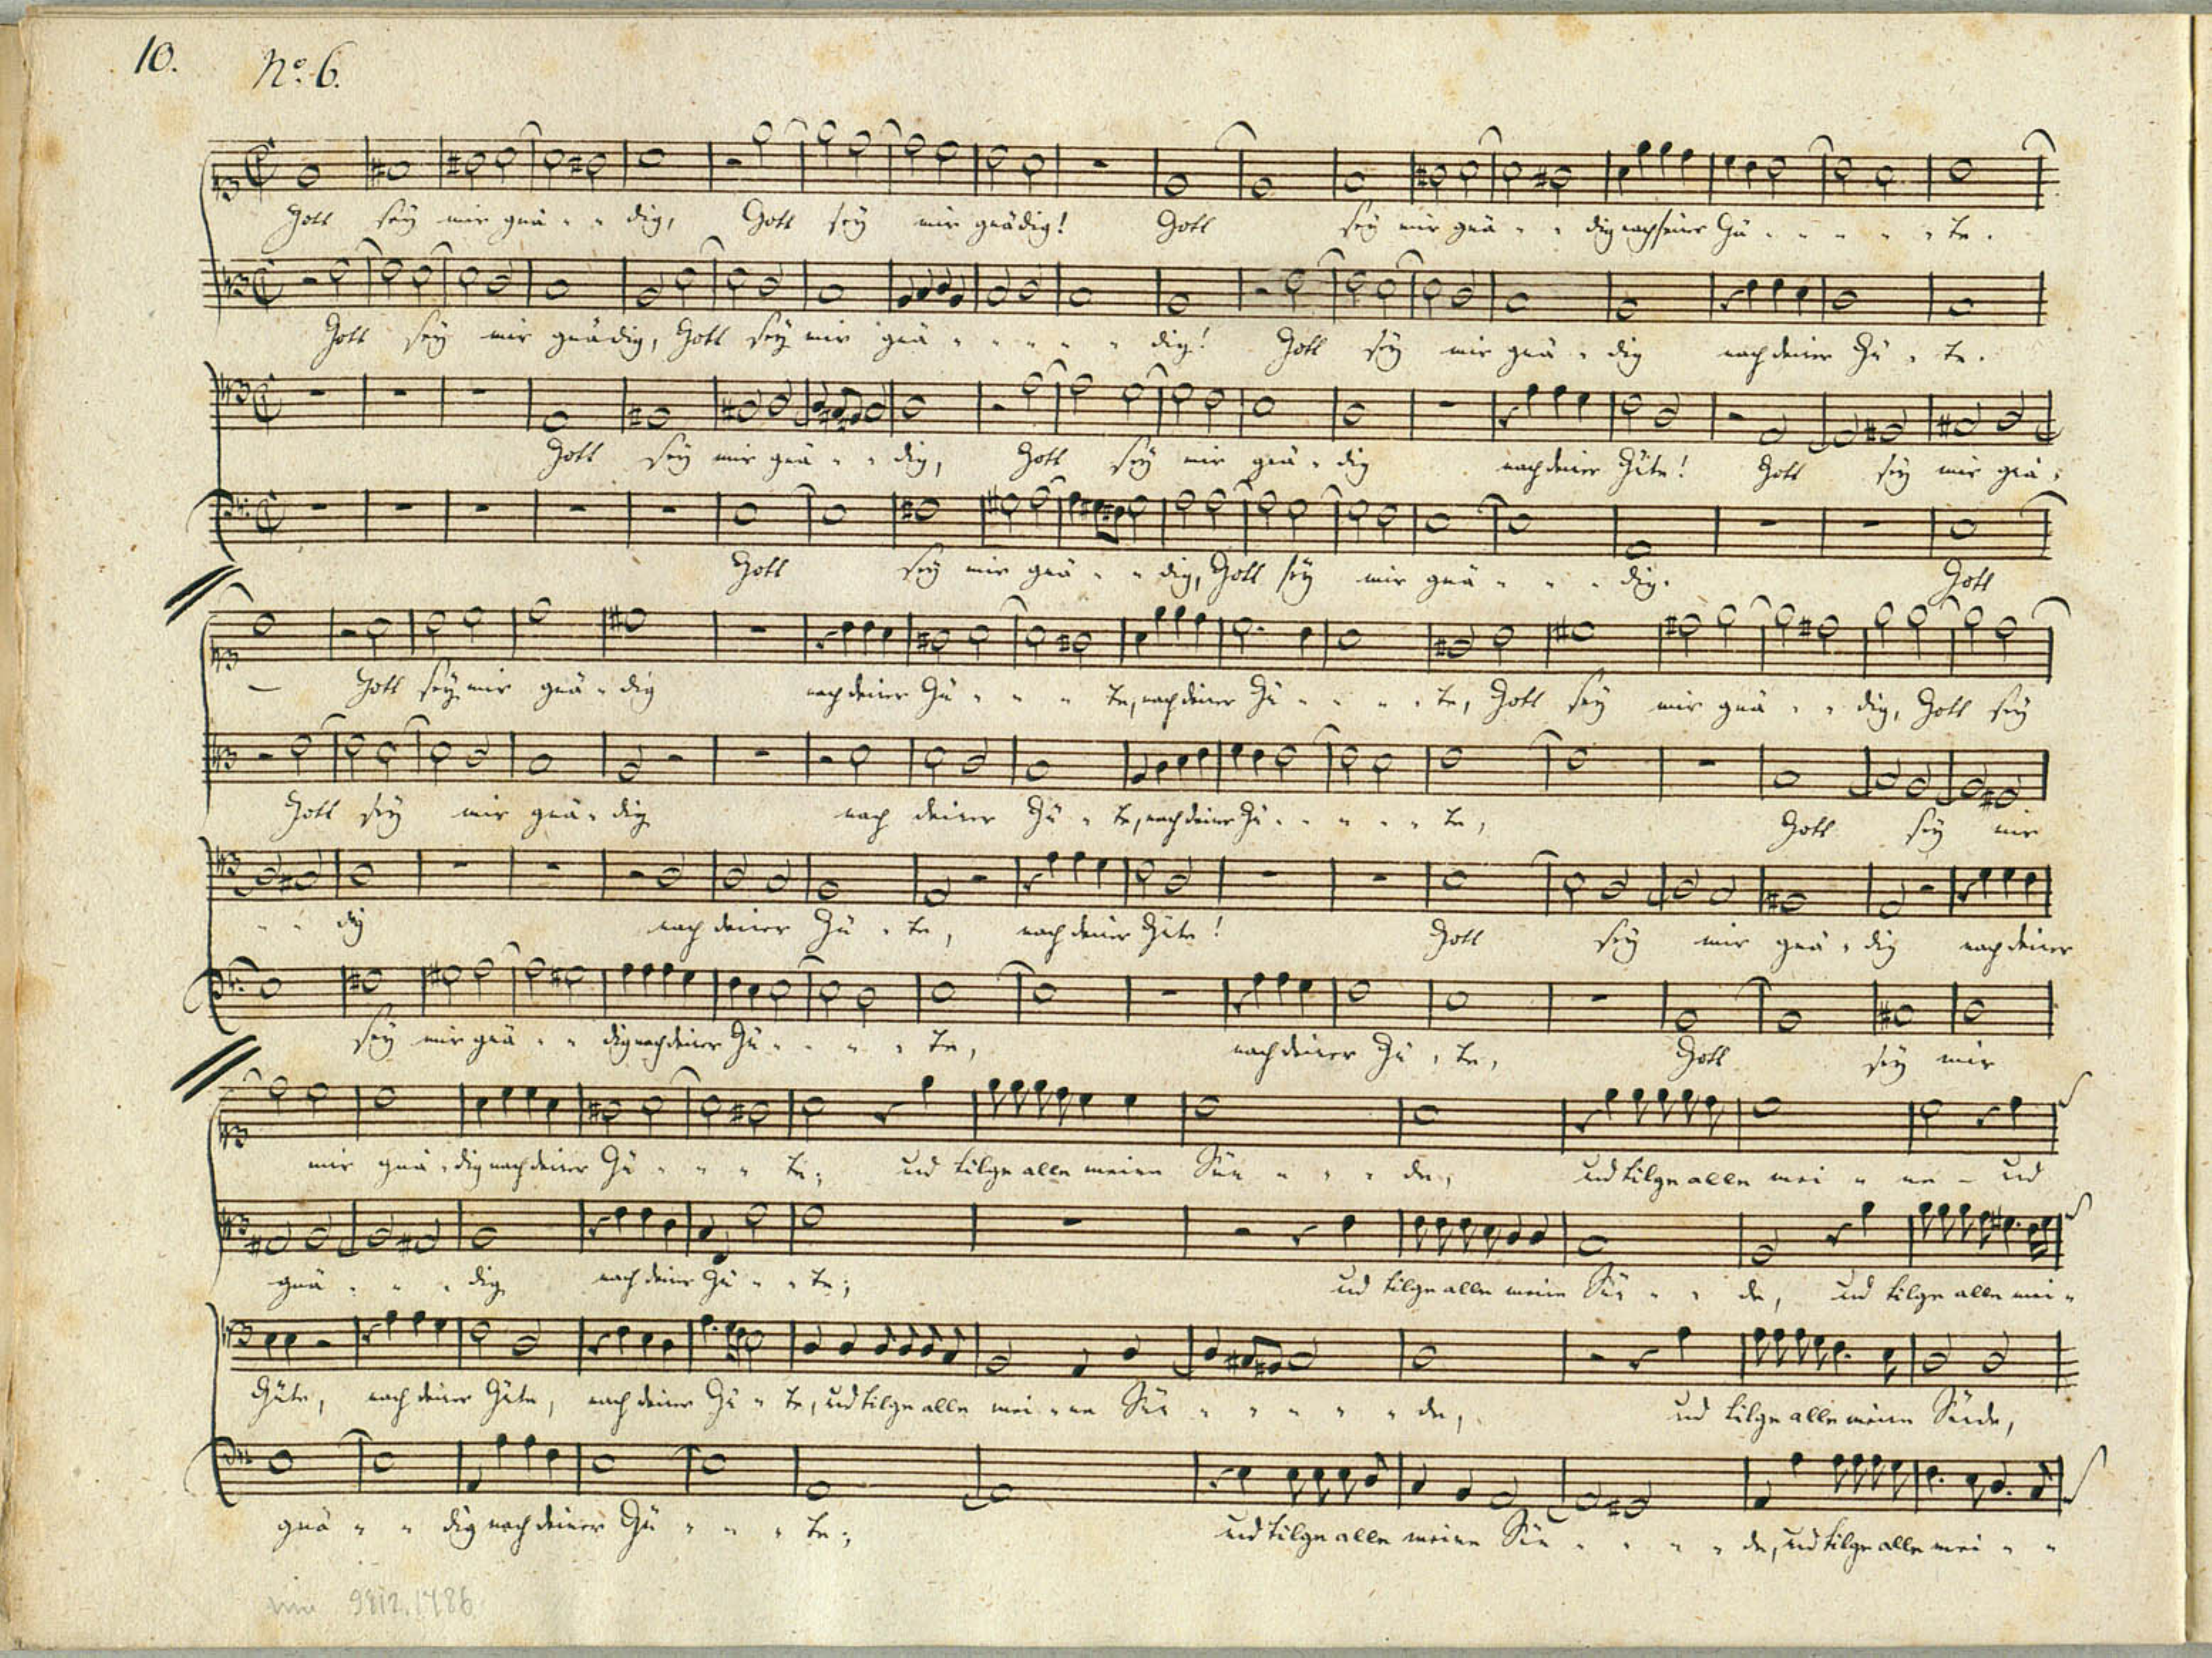 10.
No. 6.
Gott sey mir gnä - - dig, Gott sey mir gnädig! Gott sey mir gnä - - dig nach seiner Gü - - - - - te.
Gott sey mir gnädig, Gott sey mir gnä - - - - - dig! Gott sey mir gnä - dig nach deiner Gü - te.
Gott sey mir gnä - - dig, Gott sey mir gnä - dig nach deiner Güte! Gott sey mir gnä -
Gott sey mir gnä - - dig, Gott sey mir gnä - - - dig.
Gott
— Gott sey mir gnä - dig nach deiner Gü - - - te, nach deiner Gü - - - - te, Gott sey mir gnä - - dig, Gott sey
Gott sey mir gnä - dig nach deiner Gü - te, nach deiner Gü - - - - - te, Gott sey mir
- - dig nach deiner Gü - te, nach deiner Güte! Gott sey mir gnä - dig nach deiner
sey mir gnä - - dig nach deiner Gü - - - - te, nach deiner Gü - te, Gott sey mir
mir gnä - dig nach deiner Gü - - - te; und tilge alle meine Sün - - - de, und tilge alle mei - ne - und
gnä - - - dig nach deiner Gü - - te; und tilge alle meine Sün - - de, und tilge alle mei -
Güte, nach deiner Güte, nach deiner Gü - te, und tilge alle mei - ne Sün - - - - - de, und tilge alle meine Sünde,
gnä - - dig nach deiner Gü - - - te; und tilge alle meine Sün - - - - de, und tilge alle mei - -